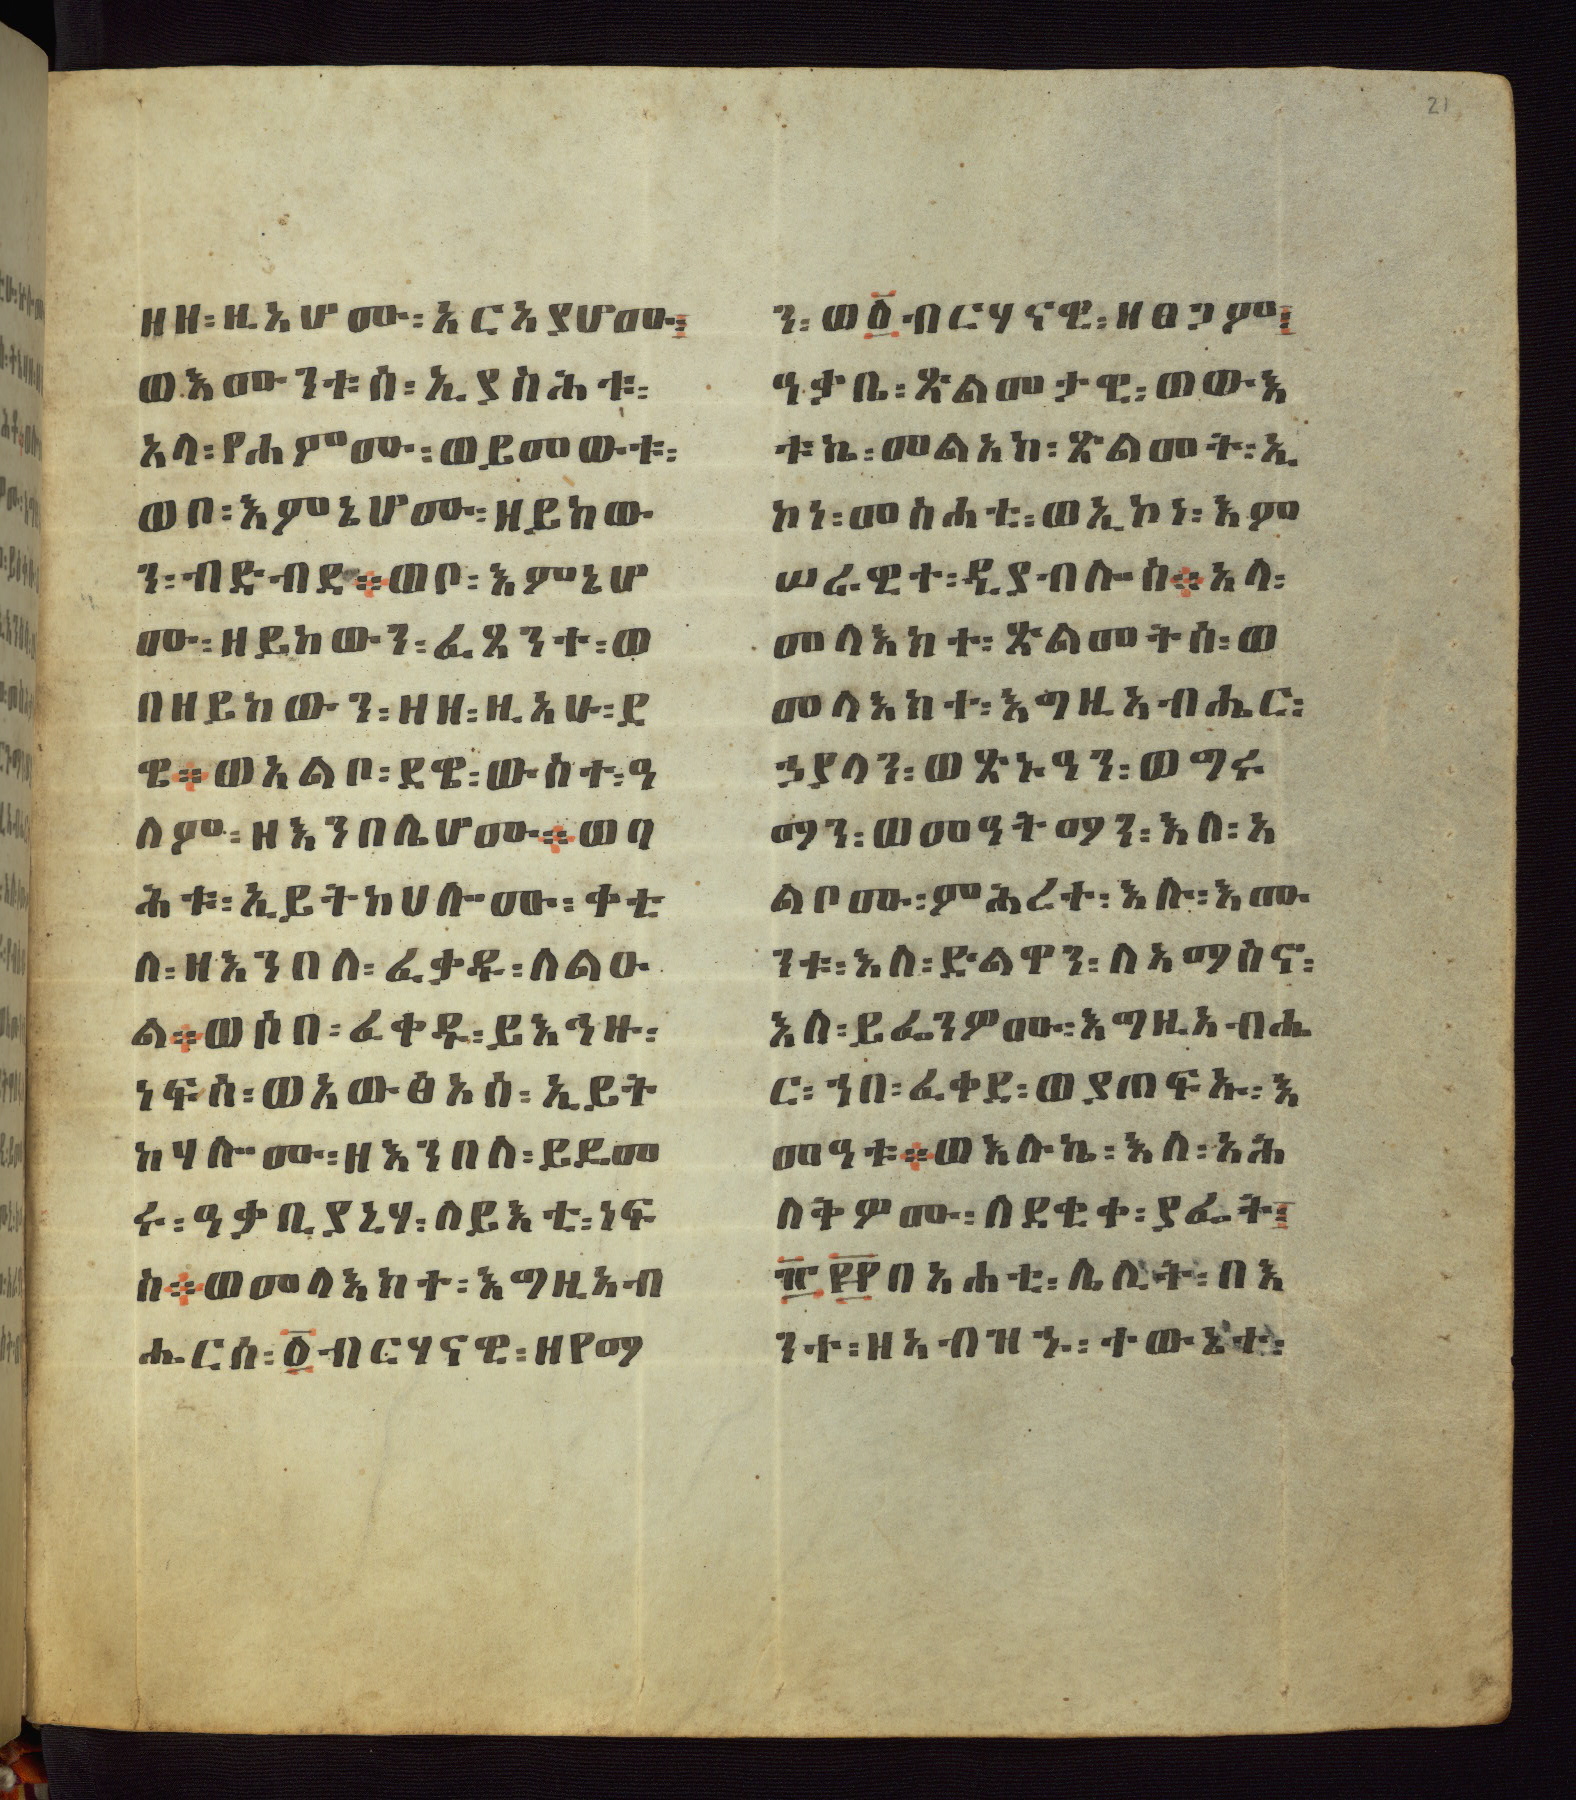 21
ዘዘ፡ዚአሆሙ፡አርአያሆሙ፡
ወእሙንቱሰ፡ኢያስሕቱ፡
አላ፡የሐምሙ፡ወይመውቱ፡
ወቦ፡እምኒሆሙ፡ዘይከው
ን፡ብድብደ፨ወቦ፡እምኒሆ
ሙ፡ዘይከውን፡ፈጸንተ፡ወ
በዘይከውን፡ዘዘ፡ዚአሁ፡ደ
ዌ፨ወአልቦ፡ደዌ፡ውስተ፡ዓ
ለም፡ዘእንበሌሆሙ፨ወባ
ሕቱ፡ኢይትከሀሎሙ፡ቀቲ
ለ፡ዘእንበለ፡ፈቃዱ፡ለልዑ
ል፨ወሶበ፡ፈቀዱ፡ይእኅዙ፡
ነፍሰ፡ወአውፅአሰ፡ኢይት
ከሃሎሙ፡ዘእንበለ፡ይደመ
ሩ፡ዓቃቢያኒሃ፡ለይእቲ፡ነፍ
ስ፨ወመላእክተ፡እግዚአብ
ሔርሰ፡፩ብርሃናዊ፡ዘየማ
ን፡ወ፩ብርሃናዊ፡ዘፀጋም፡
ዓቃቤ፡ጽልመታዊ፡ወውእ
ቱኬ፡መልአከ፡ጽልመት፡ኢ
ኮነ፡መስሐቲ፡ወኢኮነ፡እም
ሠራዊተ፡ዲያብሎስ፨አላ፡
መላእክተ፡ጽልመትሰ፡ወ
መላእክተ፡እግዚአብሔር፡
ኃያላን፡ወጽኑዓን፡ወግሩ
ማን፡ወመዓትማን፡እለ፡አ
ልቦሙ፡ምሕረተ፡እሉ፡እሙ
ንቱ፡እለ፡ድልዋን፡ለአማስኖ፡
እለ፡ይፌንዎሙ፡እግዚአብሔ
ር፡ኀበ፡ፈቀደ፡ወያጠፍኡ፡እ
መዓቱ፨ወእሉኬ፡እለ፡አሕ
ለቅዎሙ፡ለደቂቀ፡ያፌት፡
፲፰፻፻በአሐቲ፡ሌሊት፡በእ
ንተ፡ዘአብዝኁ፡ተውኔተ፡